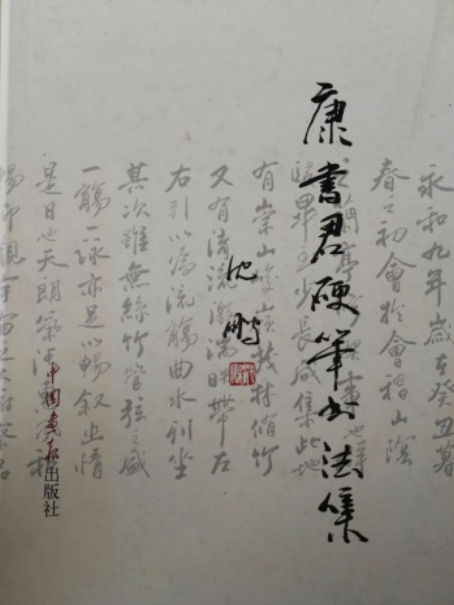 康書君硬筆书法集
沈鹏
永和九年歲在癸丑暮
春之初會於會稽山陰
蘭亭
賢畢至少長咸集此地
有崇山峻嶺茂林脩竹
又有清流激湍映帶左
右引以為流觴曲水列坐
其次雖無絲竹管弦之盛
一觴一詠亦足以暢叙幽情
是日也天朗氣清惠風和
暢仰觀宇宙之大俯察品
中國畫报出版社